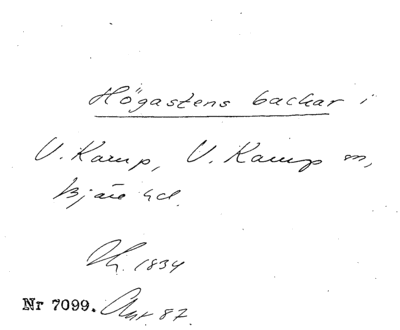 Högastens backar i
V. Karup, V. Karup sn,
Bjäre hd.
1834
Nr 7099. 87